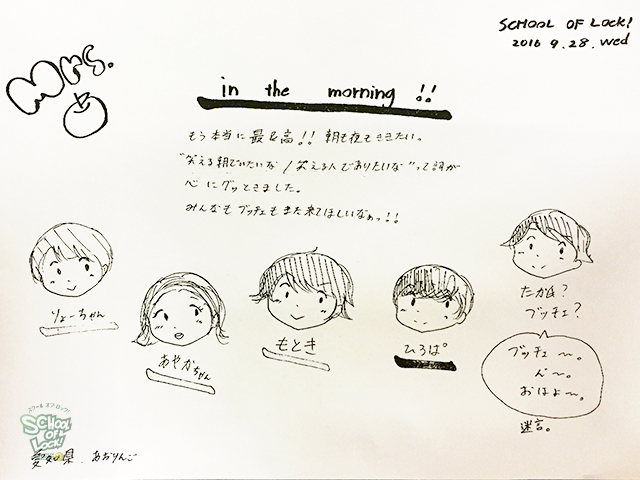 SCHOOL OF LOCK!
2016 9.28.wed
Mrs.
in the morning !!
もう本当に最&高!! 朝も夜もききたい。
"笑える朝でいたいな/笑える人でありたいな"って詞が
心にグッときました。
みんなもブッチェもまた来てほしいなぁっ!!
りょーちゃん
あやかちゃん
もとき
ひろぱ
たかし?
ブッチェ?
ブッチェ〜。
ん〜。
おはよ〜。
迷言。
スクール オブ ロック!
SCHOOL
OF
LOCK!
愛知県. あおりんご